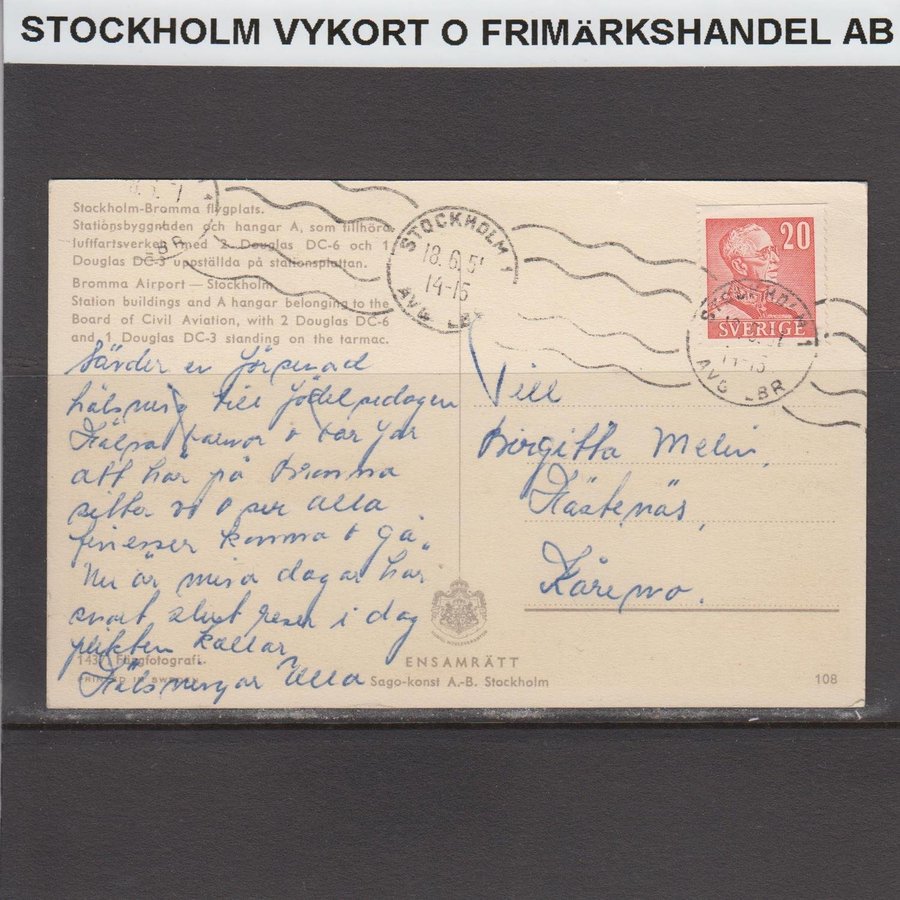 STOCKHOLM VYKORT O FRIMÄRKSHANDEL AB
Stockholm-Bromma flygplats.
Stationsbyggnaden och hangar A, som tillhöra
luftfartsverket med 2 Douglas DC-6 och 1
Douglas DC-3 uppställda på stationsplattan.
Bromma Airport — Stockholm
Station buildings and A hangar belonging to the
Board of Civil Aviation, with 2 Douglas DC-6
and 1 Douglas DC-3 standing on the tarmac.
STOCKHOLM 1
18.6.51
14-15
AVG LBR
20
SVERIGE
STOCKHOLM 1
14-15
AVG LBR
Sänder en
hälsning till
Hälsa
att har på Bromma
sitter vi o ser alla
finesser komma o gå.
Nu är mina dagar här
snart slut reser i dag
plikten kallar
Hälsningar Ulla
Till
Birgitta Melin,
Hästenäs,
Käremo.
143/1 Färgfotografi.
PRINTED IN SWEDEN
ENSAMRÄTT
Sago-konst A.-B. Stockholm
108